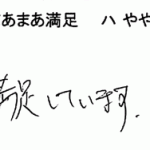 まあまあ満足 ハ やや
満足しています.